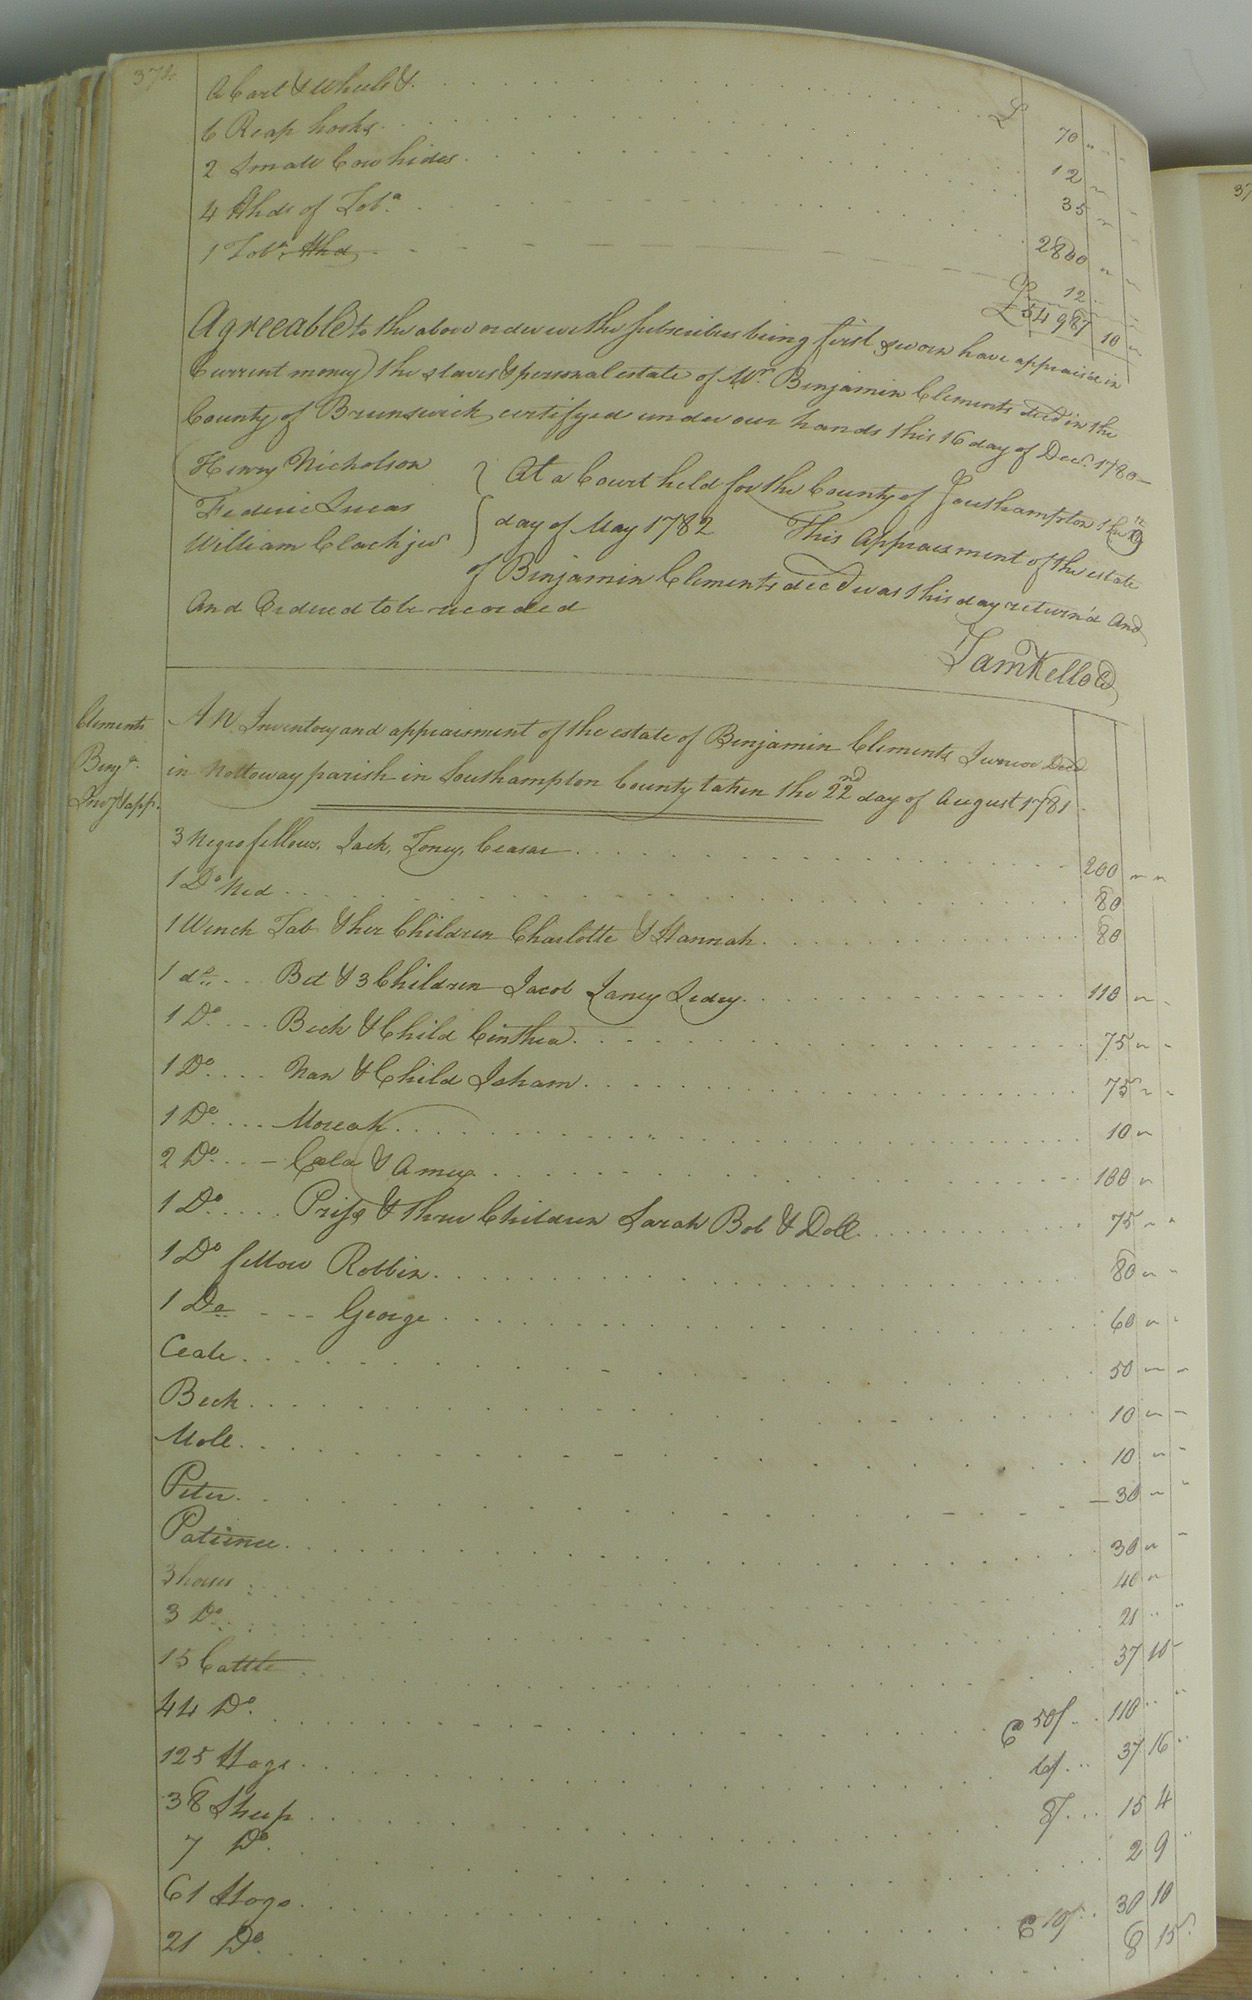 374
A Cart & wheels &c. £ 70
6 Reap hooks 12
2 Small Cow hides 35
4 Hhds of Tob.o 2800
1 Tob.o Hhd 12
£ 54987 10
Agreeable to the above order we the Subscribers being first sworn have appraised in
Current money the slaves & personal estate of Mr. Benjamin Clements decd in the
County of Brunswick certifyed under our hands this 16 day of Decr. 1780
Henry Nicholson
Frederic Lucas
William Clack jur
At a Court held for the County of Southampton the
day of May 1782 This Appraisment of the estate
of Benjamin Clements decd was this day return'd And
And Ordered to be recorded
Sam Kello
Clements
Benja.
Invy & app.
AN Inventory and appraisment of the estate of Benjamin Clements Junior Decd
in Nottoway parish in Southampton County taken the 22nd day of August 1781
3 Negro fellows, Jack, Toney, Ceasar 200
1 Do Ned 80
1 Wench Tab & her Children Charlotte & Hannah 80
1 do Bet & 3 Children Jacob Janey 110
1 Do Beck & Child Cinthea 75
1 Do Nan & Child Isham 75
1 Do 10
2 Do & Amey 100
1 Do & three Children Sarah Bob & Doll 75
1 Do fellow Robbin 80
1 Do George 60
Ceale 50
Beck 10
Moll 10
Peter 30
Patience 30
3 horses 40
3 Do 21
15 Cattle 37 10
44 Do @ 50/ 110
125 Hogs 6/ 37 16
38 Sheep 8/ 15 4
7 Do 2 9
61 Hogs @ 10/ 30 10
21 Do 8 15